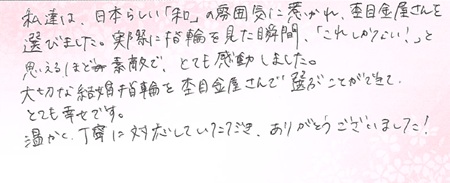 私達は、日本らしい「和」の雰囲気に惹かれ、杢目金屋さんを
選びました。実際に指輪を見た瞬間、「これしかない!」と
思えるほど素敵で、とても感動しました。
大切な結婚指輪を杢目金屋さんで選ぶことができて、
とても幸せです。
温かく、丁寧に対応していただき、ありがとうございました!